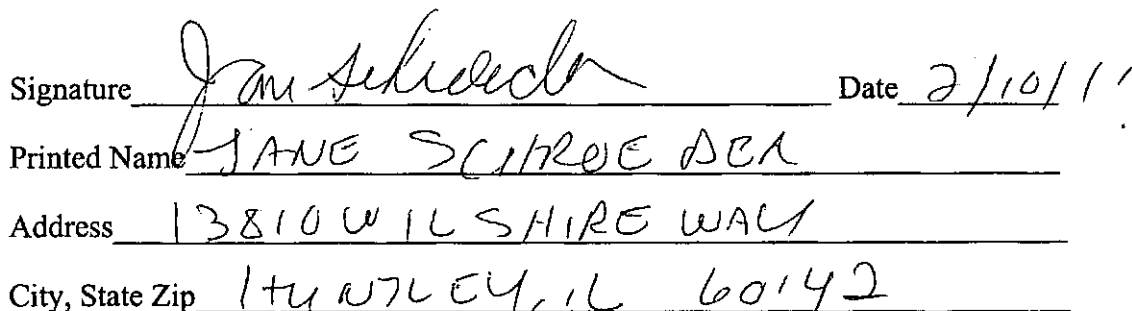 Signature Jane Schroeder Date 2/10/11
Printed Name JANE SCHROEDER
Address 13810 WILSHIRE WAY
City, State Zip HUNTLEY, IL 60142